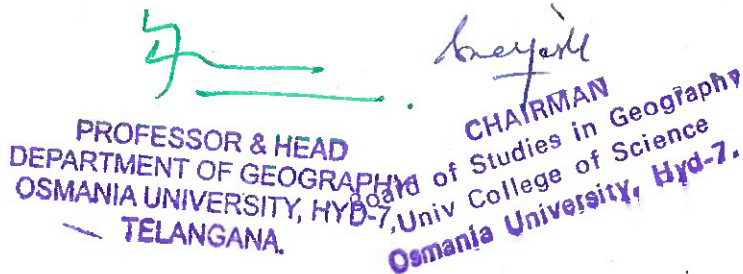 PROFESSOR & HEAD
DEPARTMENT OF GEOGRAPHY
OSMANIA UNIVERSITY, HYD-7,
TELANGANA.
CHAIRMAN
Board of Studies in Geography
Univ College of Science
Osmania University, Hyd-7.